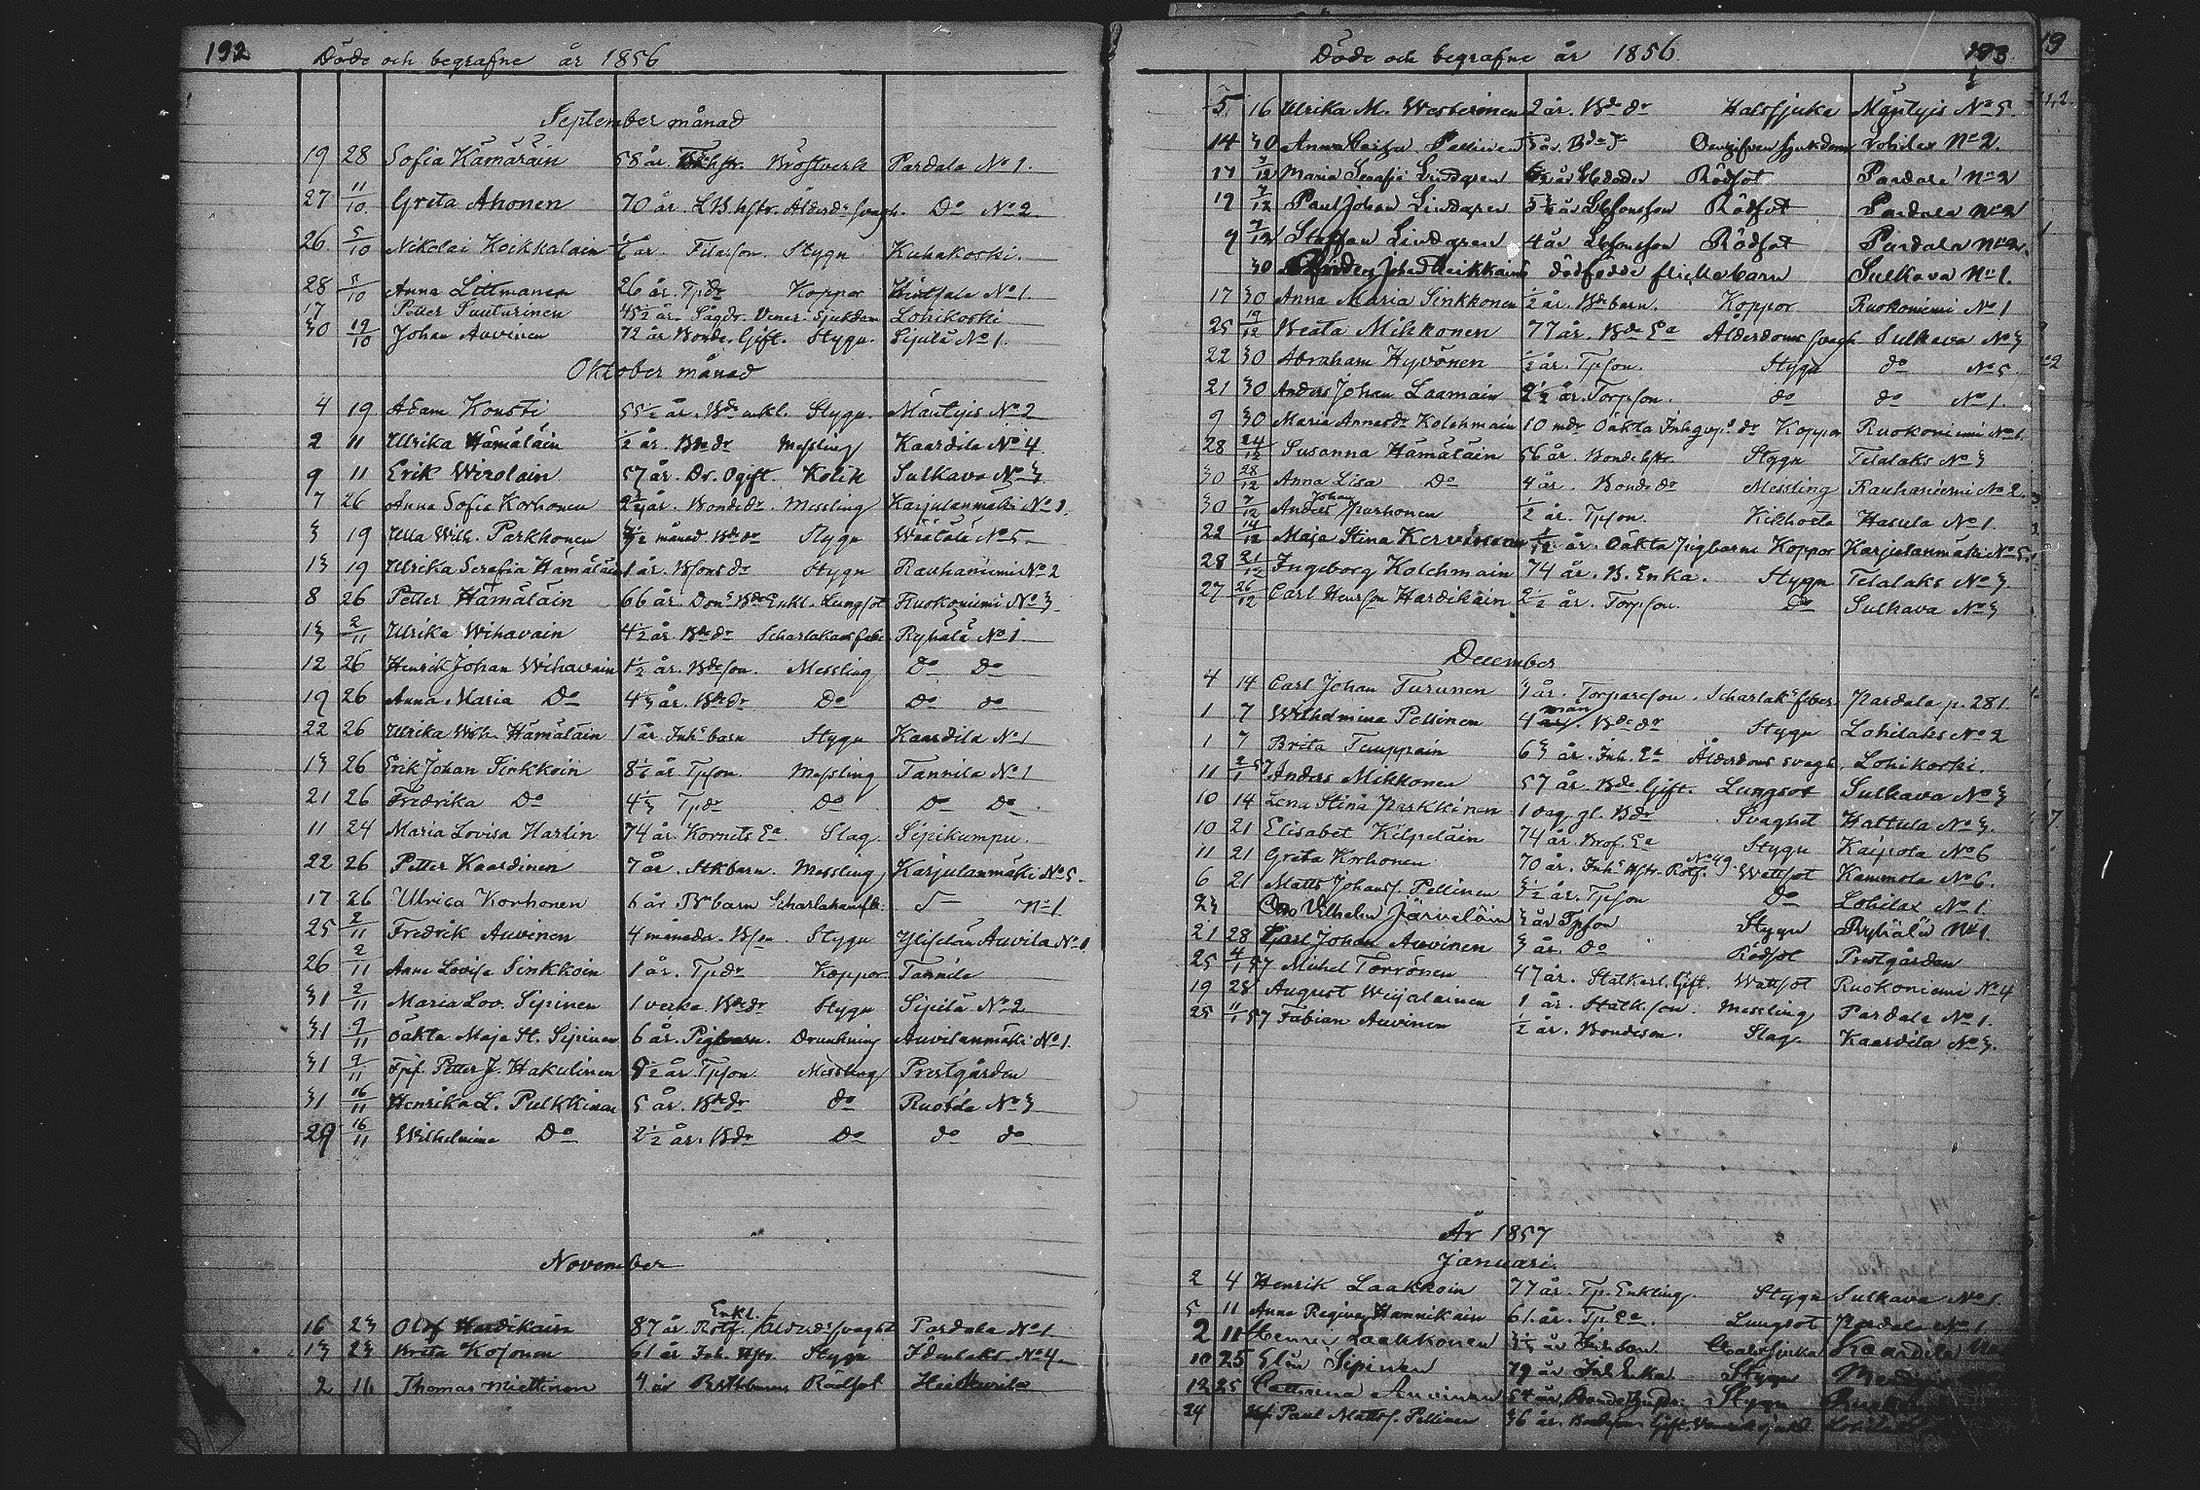 192 Döde och begrafne år 1856
September månad
19 28 Sofia Kämäräin 58 år. Bröstverk Pardala No 1.
27 11/10 Greta Ahonen 70 år. Ålderds svagh. Do No 2
26 5/10 Nikolai Koikkalain år. Stygn Kuhakoski.
28 5/10 Anna Littmanen 26 år. Tpdr Koppor No 1.
17 Petter Suuturinen 45 1/2 år. Vener. Sjukdom Lohikoski
30 19/10 Johan Auvinen 72 år Bonde. Gift. Stygn. Sipilä No 1.
Oktober månad
4 19 Adam Konsti 55 1/2 år. Bde enkl. Stygn. Mäntyis No 2
2 11 Ulrika Hämäläin 1/2 år. Bde dr Messling Kaardila No 4.
9 11 Erik Wirolain 57 år. Dr. Ogift. Kolik Sulkava No 3
7 26 Anna Sofia Korhonen år. Bonde dr. Messling Karjulanmäki No 1.
3 19 Ulla Wilh. Parkhonen månad Bde dr Stygn Wäätälä No 5.
13 19 Ulrika Serafia Hämäläin 1 år. Bsons dr Stygn Rauhaniemi No 2
8 26 Petter Hämäläin 66 år. Enkl. Lungsot Ruokoniemi No 3
13 2/11 Ulrika Wihavain 4 1/2 år. Bde dr Scharlakansfeber Ryhälä No 1
12 26 Henrik Johan Wihavain 1 1/2 år. Bdeson. Messling Do Do
19 26 Anna Maria Do 4 1/3 år. Bde dr Do Do do
22 26 Ulrika Wilh. Hämäläin 1 år Inhs barn Stygn Kaardila No 1
13 26 Erik Johan Sinkkoin 8 1/2 år Tpson. Messling Tannila No 1
21 26 Fredrika Do 4 1/3 Tpdr Do Do Do
11 24 Maria Lovisa Harlin 74 år. Kornets Ea Slag. Sipikumpu.
22 26 Petter Kaardinen 7 år. Messling Karjulanmäki No 5.
17 26 Ulrica Korhonen 6 år barn Scharlakansfb. No 1
25 2/11 Fredrik Auvinen 4 måneda. Bson Stygn Auvila No 1
26 2/11 Anna Lovisa Sinkkoin 1 år. Tpdr Koppor Tannila
31 2/11 Maria Lov. Sipinen 1 veeka Bdedr Stygn Sipilä No 2
31 9/11 Oäkta Maja St. Sipinen 6 år. Pigbarn. Drunkning Auvilanmäki No 1.
31 9/11 Petter J. Hakulinen 8 1/2 år Tpson. Messling Prestgården
31 16/11 Henrika L. Pulkkinen 5 år. Bde dr do Ruotila No 3
29 16/11 Wilhelmina Do 2 1/2 år. Bdr Do do do
November
16 23 Olof Hardikain 87 år Enkl. Ålderds svaght Pardala No 1
13 23 Brita Kosonen 61 år Inh. Stygn Idenlaks No 4
2 11 Thomas Miettinen 4 år Rödsot
Döde och begrafne år 1856 193
5 16 Ulrika M. Westerinen 2 år. Bde dr Halssjuka Mäntyis No 5.
14 30 Anna Pellinen år. Bde dr Lohilax No 2.
17 7/12 Maria Serafia Lindgren år Rödsot Pardala No 2
19 7/12 Paul Johan Lindgren år Rödsot Pardala No 2
9 7/12 Staffan Lindgren 4 år Rödsot Pardala No 2
30 dödfödde flickebarn Sulkava No 1.
17 30 Anna Maria Sinkkonen 1/2 år. Bde barn. Koppor Ruokoniemi No 1
25 19/12 Beata Mikkonen 77 år. Bde Ea Ålderdoms svagh Sulkava No 3
22 30 Abraham Hyvönen 1/2 år. Tpson. Stygn do No 5
21 30 Anders Johan Laamain 2 1/2 år. Torpson. do do No 1.
9 30 Maria Annasdr Kolehmain 10 mdr Oäkta Koppor Ruokoniemi No 1.
28 24/12 Susanna Hämäläin 56 år. Stygn Telalaks No 3
30 28/12 Anna Lisa Do 4 år. Bonde dr Messling Rauhaniemi No 2.
30 7/12 Anders Johan Purhonen 1/2 år. Tpson. Kikhosta Hasula No 1.
22 14/12 Maja Stina år. Oäkta Pigbarn Koppor Karjulanmäki No 5.
28 21/12 Ingeborg Kolehmain 74 år. B. Enka. Stygn Telalaks No 3.
27 26/12 Carl Henrson Hardikain 2 1/2 år. Torpson. Do Sulkava No 3
December
4 14 Carl Johan Turunen 3 år. Torpareson. Scharlaksfeber Pardala p. 281
1 7 Wilhelmina Pellinen 4 mån Bde dr Stygn Lohilaks No 2
1 7 Brita Tenppain 63 år. Inh. Ea Ålderdoms svagh. Lohikoski.
11 2/1 57 Anders Mikkonen 57 år. Bde Gift. Lungsot Sulkava No 3
10 14 Lena Stina Parkkinen 1 dag. gl. Bdr Svaghet Hattula No 3.
10 21 Elisabet Kilpeläin 74 år. Prof. Ea Stygn Kaipola No 6
11 21 Greta Korhonen 70 år. Inhs Hstr. Rotf. No 49. Wattsot Kammola No 6.
6 21 Matts Johanss. Pellinen 3 1/2 år. Tpson Do Lohilax No 1.
23 Vilhelm Järveläin 3 år Tpson Stygn Ryhälä No 1.
21 28 Carl Johan Auvinen 3 år. Do Rödsot Prestgården
25 4/1 57 Michel Torrönen 47 år. Stalkarl. Gift. Wattsot Ruokoniemi No 4
19 28 August Wiljalainen 1 år. Stalk.son. Messling Pardala No 1.
25 11/1 57 Fabian Auvinen 1/2 år. Bondeson. Slag. Kaardila No 3.
År 1857
Januari.
2 4 Henrik Laakkoin 77 år. Tp. Enkling. Stygn Sulkava No 1.
5 11 Anna Regina Hannikain 61 år. Tp. Ea. Lungsot Pardala No 1
2 11 Laakkonen Halssjuka Kaardila
10 25 Elin Sipinen 79 år Inh Enka Stygn
12 25 Catterina Auvinen 54 år Stygn
24 Paul Matts. Pellinen 36 år. Gift.